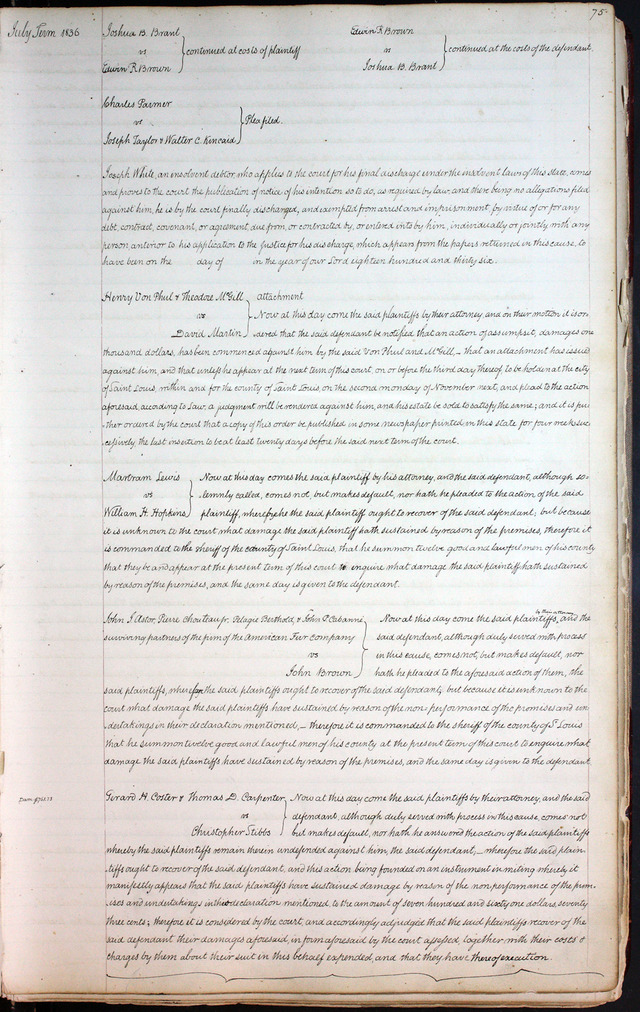 75.
July Term 1836
Joshua B. Brant
vs
Edwin R Brown
continued at costs of plaintiff
Edwin R Brown
vs
Joshua B. Brant
continued at the costs of the defendant
Charles Farmer
vs
Joseph Taylor & Walter C. Kincaid
Plea filed.
Joseph White, an insolvent debtor, who applies to the court for his final discharge under the insolvent laws of this state, comes
and proves to the court the publication of notice of his intention so to do, as required by law, and there being no allegations filed
against him, he is by the court finally discharged, and exempted from arrest and imprisonment, by virtue of or for any
debt, contract, covenant, or agreement, due from, or contracted by, or entered into by him, individually or jointly with any
person, anterior to his application to the Justice for his discharge, which appears from the papers returned in this cause, to
have been on the day of in the year of our Lord eighteen hundred and thirty six.
Henry Von Phul & Theodore McGill
vs
David Martin
attachment
Now at this day come the said plaintiffs by their attorney, and on their motion it is or-
dered that the said defendant be notified that an action of assumpsit, damages one
thousand dollars, has been commenced against him by the said Von Phul and McGill,— that an attachment has issued
against him, and that unless he appear at the next term of this court, on or before the third day thereof, to be holden at the city
of Saint Louis, within and for the county of Saint Louis, on the second monday of November next, and plead to the action
aforesaid, according to Law, a judgment will be rendered against him, and his estate be sold to satisfy the same; and it is fur-
ther ordered by the court that a copy of this order be published in some newspaper printed in this state for four weeks suc-
cessively the last insertion to be at least twenty days before the said next term of the court.
Martram Lewis
vs
William H. Hopkins
Now at this day comes the said plaintiff by his attorney, and the said defendant, although so-
lemnly called, comes not, but makes default, nor hath he pleaded to the action of the said
plaintiff, wherefore the said plaintiff ought to recover of the said defendant; but because
it is unknown to the court what damage the said plaintiff hath sustained by reason of the premises, therefore it
is commanded to the sheriff of the county of Saint Louis, that he summon twelve good and lawful men of his county
that they be and appear at the present term of this court to enquire what damage the said plaintiff hath sustained
by reason of the premises, and the same day is given to the defendant.
John J Astor, Pierre Chouteau jr, Pelagie Berthold, & John P. Cabanné
surviving partners of the firm of the American Fur Company
vs
John Brown
by their attorney
Now at this day come the said plaintiffs, and the
said defendant, although duly served with process
in this cause, comes not, but makes default, nor
hath he pleaded to the aforesaid action of them, the
said plaintiffs, wherefore the said plaintiffs ought to recover of the said defendant; but because it is unknown to the
court what damage the said plaintiffs have sustained by reason of the non-performance of the promises and un-
dertakings in their declaration mentioned,— therefore it is commanded to the sheriff of the county of St Louis
that he summon twelve good and lawful men of his county at the present term of this court to enquire what
damage the said plaintiffs have sustained by reason of the premises, and the same day is given to the defendant
Gerard H. Coster & Thomas D. Carpenter
vs
Christopher Stibbs
Now at this day come the said plaintiffs by their attorney, and the said
defendant, although duly served with process in this cause, comes not
but makes default, nor hath he answered the action of the said plaintiffs
whereby the said plaintiffs remain therein undefended against him, the said defendant,— wherefore the said plain-
tiffs ought to recover of the said defendant, and this action being founded on an instrument in writing whereby it
manifestly appears that the said plaintiffs have sustained damage by reason of the non performance of the prom-
ises and undertakings in the declaration mentioned to the amount of seven hundred and sixty one dollars, seventy
three cents; therefore it is considered by the court, and accordingly adjudged that the said plaintiffs recover of the
said defendant their damages aforesaid, in form aforesaid by the court assessed, together with their costs &
charges by them about their suit in this behalf expended, and that they have thereof execution.